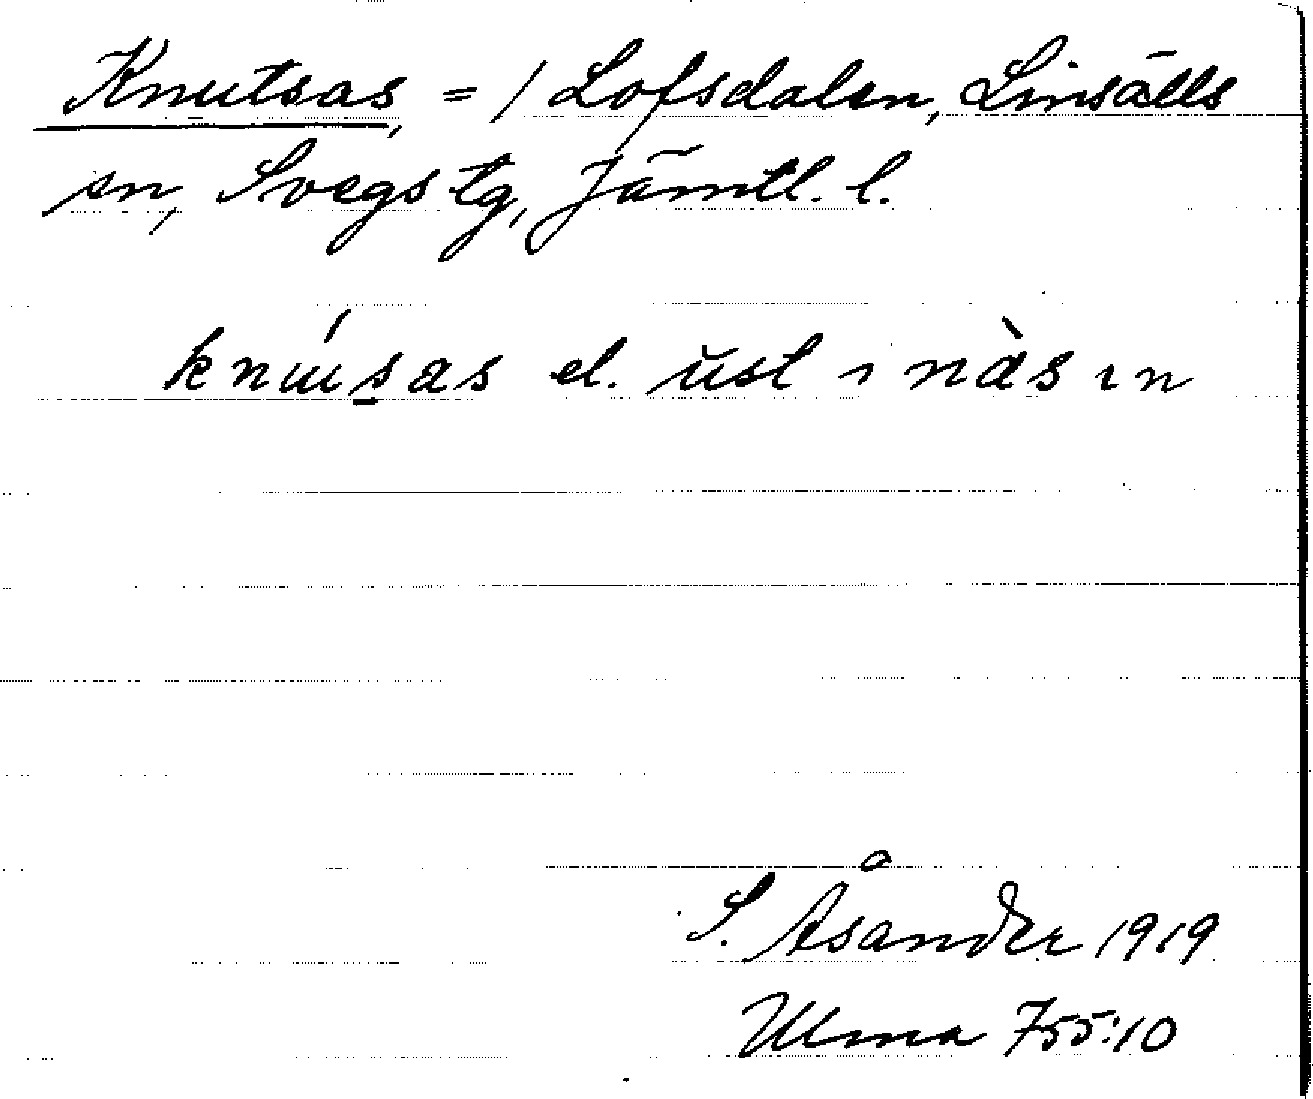 Knutsas, = / Lofsdalen, Linsälls
sn, Svegs tg, Jämtl. l.
knúısas el. ŭst ı nàs ın
S. Åsander 1919
Ulma 755:10